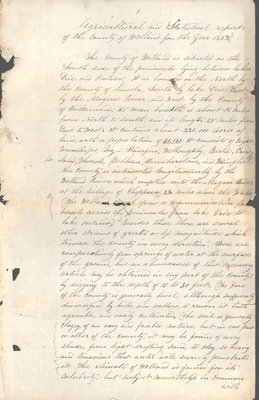 Agricultural and Statistical report
of the County of Welland for the year 185
The County of Welland is situated on the
South side of the peninsula lying between Lakes
Erie and Ontario. It is bounded on the North by
the County of Lincoln, South by Lake Erie, East
by the Niagara River and West by the County
of Haldimand, its mean breadth is about miles
from North to South and its length 25 miles from
East to West. It contains about 230.000 acres of
land, with a population of It consists of eight
Townships viz. Bertie, Crow-
land, Thorold, Pelham, Humberstone, and Wainfleet.
The County is intersected longitudinally by the
Welland River which empties into the Niagara River
at the village of Chippawa 2½ miles above the Falls.
The Welland Canal opens a communication for
vessels across the Peninsula from Lake Erie to
Lake Ontario; besides these there are several
other streams of greater or less magnitude which
traverse the County in every direction. There are
comparatively few springs of water at the surface
of the ground, but an abundance of that necessary
article may be obtained in any part of the County
by digging to the depth of 10 to 30 feet. The face
of the County is generally level, although sufficiently
diversified by hills and vallies, to render it both
agreeable and easily cultivated. The soil is generally
Clayey, of an easy and friable nature, but in one part
or other of the County, it may be found of every
shade, from light drifting sand, to clay so heavy
and tenacious that water will scarcely penetrate
it. The climate of Welland is famed for its
salubrity, but subject nevertheless in common
with